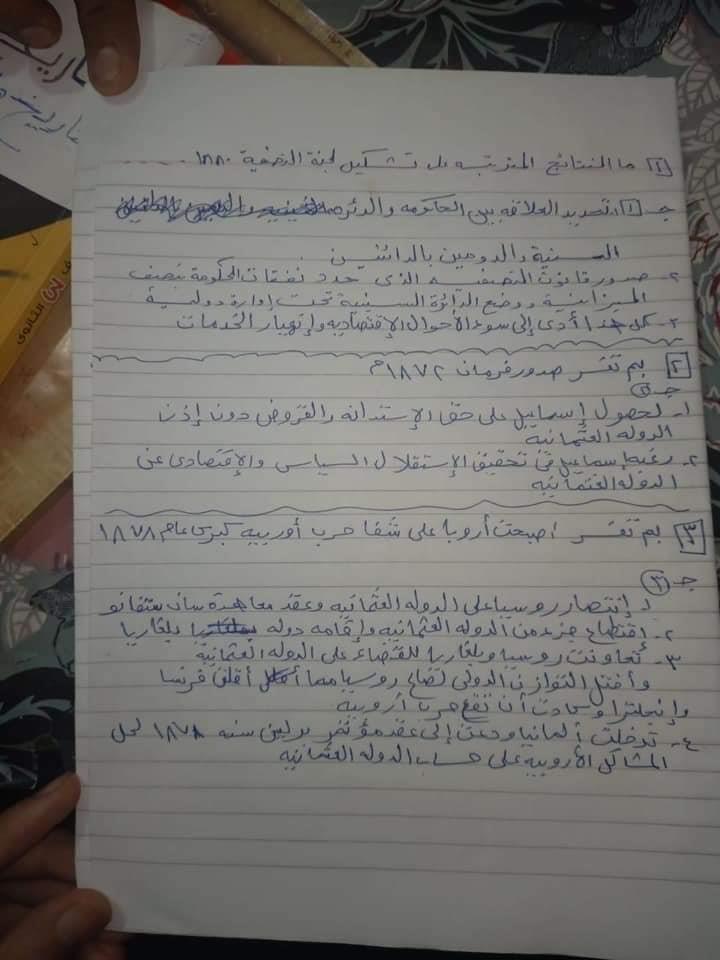 ١ ما النتائج المترتبه على تشكيل لجنة التصفية ١٨٨٠
جـ ١ ١- تحديد العلاقه بين الحكومه والدائره
السنية والدومين بالدائنين
٢- صدور قانون التصفيه الذى حدد نفقات الحكومة بنصف
الميزانية ووضع الدائرة السنية تحت إدارة دولية
٣- كل هذا أدى إلى سوء الأحوال الإقتصاديه وإنهيار الخدمات
٢ بم تفسر صدور فرمان ١٨٧٢م
جـ ٢
١- لحصول إسماعيل على حق الإستدانه والقروض دون إذن
الدوله العثمانيه
٢- رغبه إسماعيل فى تحقيق الإستقلال السياسى والإقتصادى عن
الدوله العثمانيه
٣ بم تفسر اصبحت أروبا على شفا حرب أوربيه كبرى عام ١٨٧٨
جـ ٣
١- إنتصار روسيا على الدوله العثمانيه وعقد معاهدة سان ستفانو
٢- إقتطاع جزء من الدوله العثمانيه وإقامه دوله بلغاريا
٣- تعاونت روسيا وبلغاريا للقضاء على الدوله العثمانية
وأختل التوازن الدولى لصالح روسيا مما أقلق فرنسا
وإنجلترا وكادت أن تقع حرب أروبية
٤- تدخلت ألمانيا ودعت إلى عقد مؤتمر برلين سنه ١٨٧٨ لحل
المشاكل الأروبيه على حساب الدوله العثمانيه
الثانوى